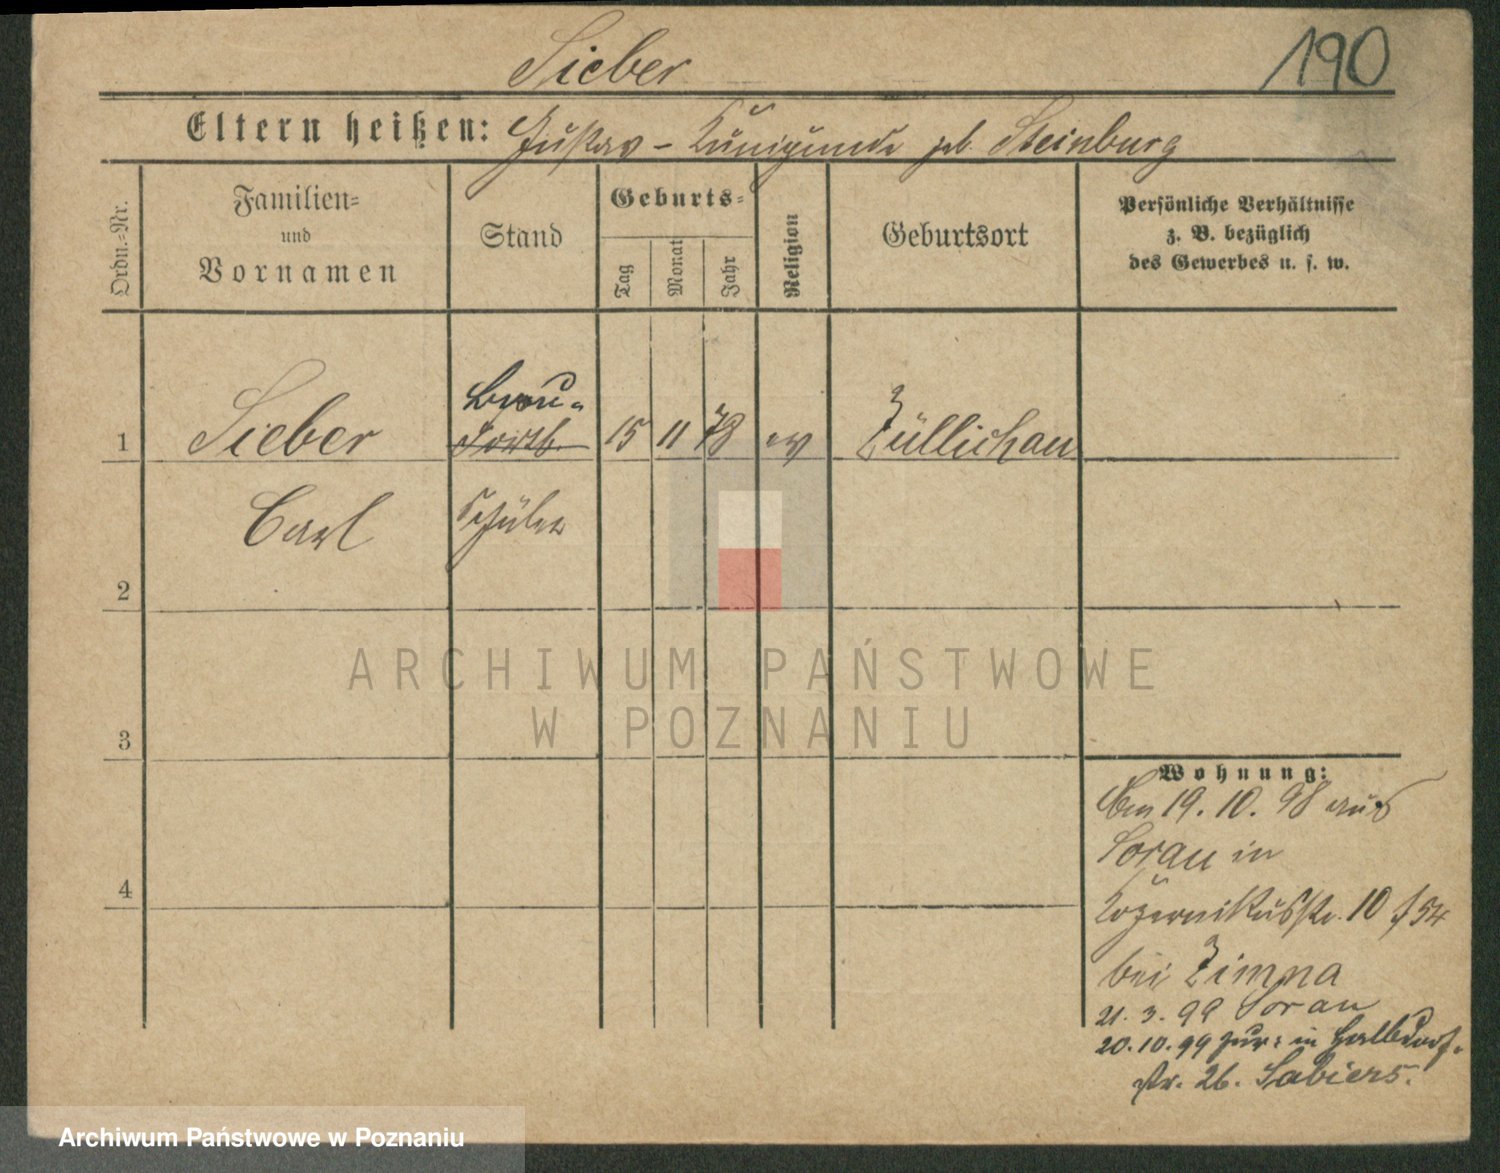 Sieber
190
Eltern heißen: Gustav – Kunigunde geb. Steinburg
Ordn.=Nr.
Familien=
und
Vornamen
Stand
Geburts=
Tag
Monat
Jahr
Religion
Geburtsort
Persönliche Verhältnisse
z. B. bezüglich
des Gewerbes u. s. w.
1
Sieber
Bau-
15
11
78
ev
Züllichau
Carl
schüler
2
3
4
ARCHIWUM PAŃSTWOWE
W POZNANIU
Wohnung:
19. 10. 98 aus
Sorau in
10
bei Zimna
21. 3. 99 Sorau
20. 10. 99 zur: in Halbdorf-
str. 26. Sabiers.
Archiwum Państwowe w Poznaniu